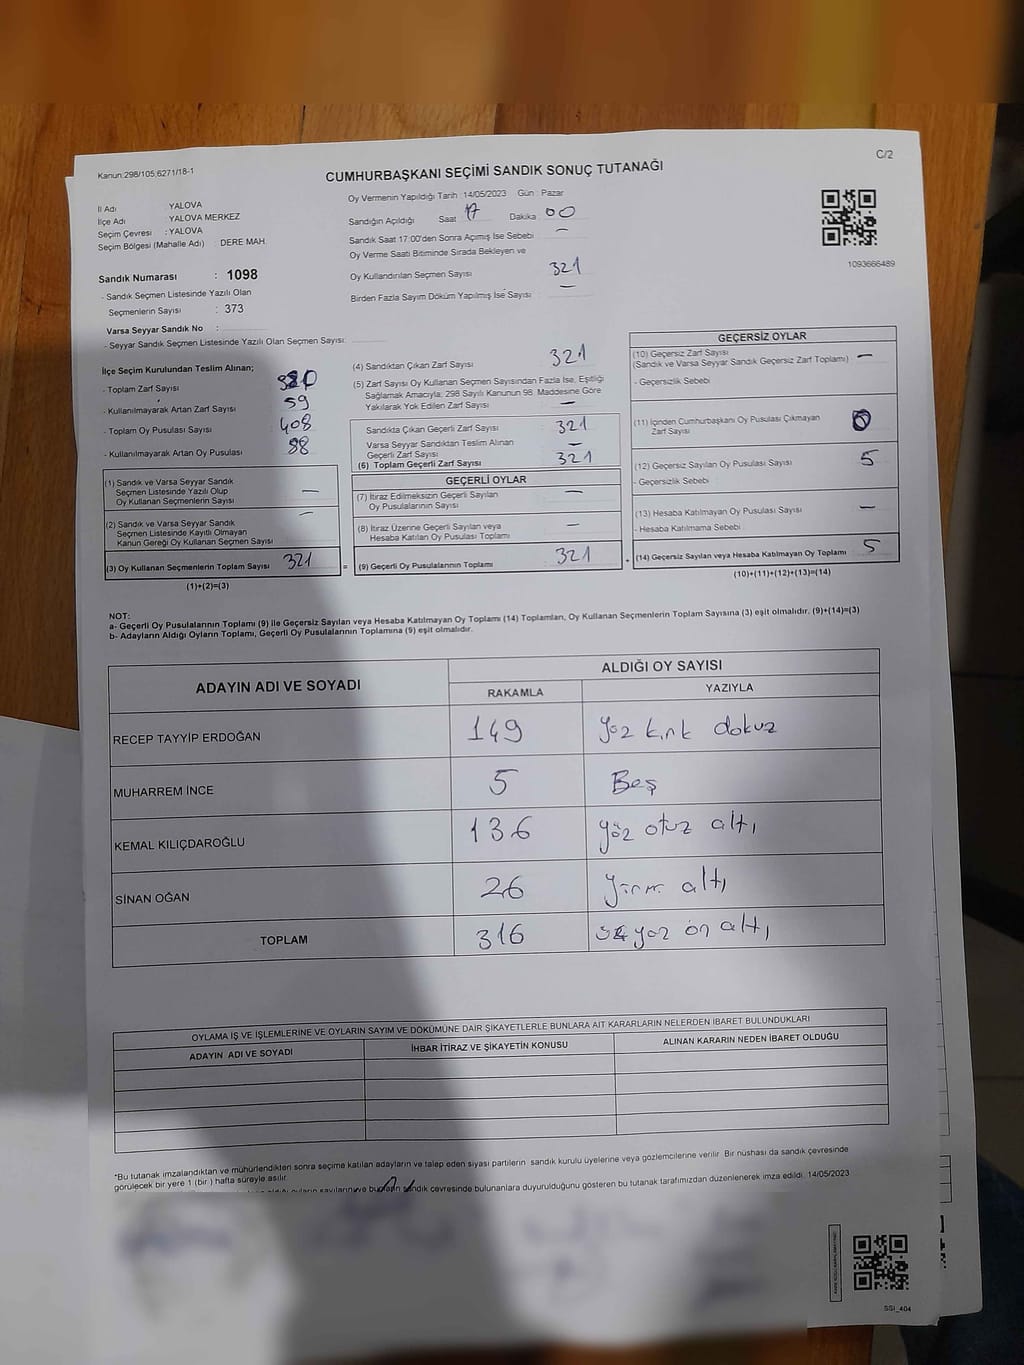 C/2
Kanun:298/105,6271/18-1
CUMHURBAŞKANI SEÇİMİ SANDIK SONUÇ TUTANAĞI
İl Adı YALOVA
İlçe Adı YALOVA MERKEZ
Seçim Çevresi : YALOVA
Seçim Bölgesi (Mahalle Adı) : DERE MAH.
Sandık Numarası : 1098
- Sandık Seçmen Listesinde Yazılı Olan
Seçmenlerin Sayısı : 373
Varsa Seyyar Sandık No :
- Seyyar Sandık Seçmen Listesinde Yazılı Olan Seçmen Sayısı:
Oy Vermenin Yapıldığı Tarih : 14/05/2023 Gün : Pazar
Sandığın Açıldığı Saat 17 Dakika 00
Sandık Saat 17:00'den Sonra Açımış İse Sebebi —
Oy Verme Saati Bitiminde Sırada Bekleyen ve
Oy Kullandırılan Seçmen Sayısı 321
Birden Fazla Sayım Döküm Yapılmış İse Sayısı : —
1093666489
İlçe Seçim Kurulundan Teslim Alınan;
- Toplam Zarf Sayısı
- Kullanılmayarak Artan Zarf Sayısı 59
- Toplam Oy Pusulası Sayısı 408
- Kullanılmayarak Artan Oy Pusulası 88
(1) Sandık ve Varsa Seyyar Sandık
Seçmen Listesinde Yazılı Olup
Oy Kullanan Seçmenlerin Sayısı —
(2) Sandık ve Varsa Seyyar Sandık
Seçmen Listesinde Kayıtlı Olmayan
Kanun Gereği Oy Kullanan Seçmen Sayısı —
(3) Oy Kullanan Seçmenlerin Toplam Sayısı 321 =
(1)+(2)=(3)
(4) Sandıktan Çıkan Zarf Sayısı 321
(5) Zarf Sayısı Oy Kullanan Seçmen Sayısından Fazla İse, Eşitliği
Sağlamak Amacıyla; 298 Sayılı Kanunun 98. Maddesine Göre
Yakılarak Yok Edilen Zarf Sayısı —
Sandıkta Çıkan Geçerli Zarf Sayısı 321
Varsa Seyyar Sandıktan Teslim Alınan
Geçerli Zarf Sayısı —
(6) Toplam Geçerli Zarf Sayısı 321
GEÇERLİ OYLAR
(7) İtiraz Edilmeksizin Geçerli Sayılan
Oy Pusulalarının Sayısı —
(8) İtiraz Üzerine Geçerli Sayılan veya
Hesaba Katılan Oy Pusulası Toplamı —
(9) Geçerli Oy Pusulalarının Toplamı 321 +
GEÇERSİZ OYLAR
(10) Geçersiz Zarf Sayısı —
(Sandık ve Varsa Seyyar Sandık Geçersiz Zarf Toplamı)
- Geçersizlik Sebebi
(11) İçinden Cumhurbaşkanı Oy Pusulası Çıkmayan
Zarf Sayısı 0
(12) Geçersiz Sayılan Oy Pusulası Sayısı 5
- Geçersizlik Sebebi
(13) Hesaba Katılmayan Oy Pusulası Sayısı —
- Hesaba Katılmama Sebebi
(14) Geçersiz Sayılan veya Hesaba Katılmayan Oy Toplamı 5
(10)+(11)+(12)+(13)=(14)
NOT:
a- Geçerli Oy Pusulalarının Toplamı (9) ile Geçersiz Sayılan veya Hesaba Katılmayan Oy Toplamı (14) Toplamları, Oy Kullanan Seçmenlerin Toplam Sayısına (3) eşit olmalıdır. (9)+(14)=(3)
b- Adayların Aldığı Oyların Toplamı, Geçerli Oy Pusulalarının Toplamına (9) eşit olmalıdır.
ADAYIN ADI VE SOYADI ALDIĞI OY SAYISI
RAKAMLA YAZIYLA
RECEP TAYYİP ERDOĞAN 149 Yüz kırk dokuz
MUHARREM İNCE 5 Beş
KEMAL KILIÇDAROĞLU 136 yüz otuz altı
SİNAN OĞAN 26 Yirmi altı
TOPLAM 316 üçyüz on altı
OYLAMA İŞ VE İŞLEMLERİNE VE OYLARIN SAYIM VE DÖKÜMÜNE DAİR ŞİKAYETLERLE BUNLARA AİT KARARLARIN NELERDEN İBARET BULUNDUKLARI
ADAYIN ADI VE SOYADI İHBAR İTİRAZ VE ŞİKAYETİN KONUSU ALINAN KARARIN NEDEN İBARET OLDUĞU
*Bu tutanak imzalandıktan ve mühürlendikten sonra seçime katılan adayların ve talep eden siyasi partilerin sandık kurulu üyelerine veya gözlemcilerine verilir. Bir nüshası da sandık çevresinde
görülecek bir yere 1 (bir) hafta süreyle asılır.
sandık çevresinde bulunanlara duyurulduğunu gösteren bu tutanak tarafımızdan düzenlenerek imza edildi. 14/05/2023
SSI_404